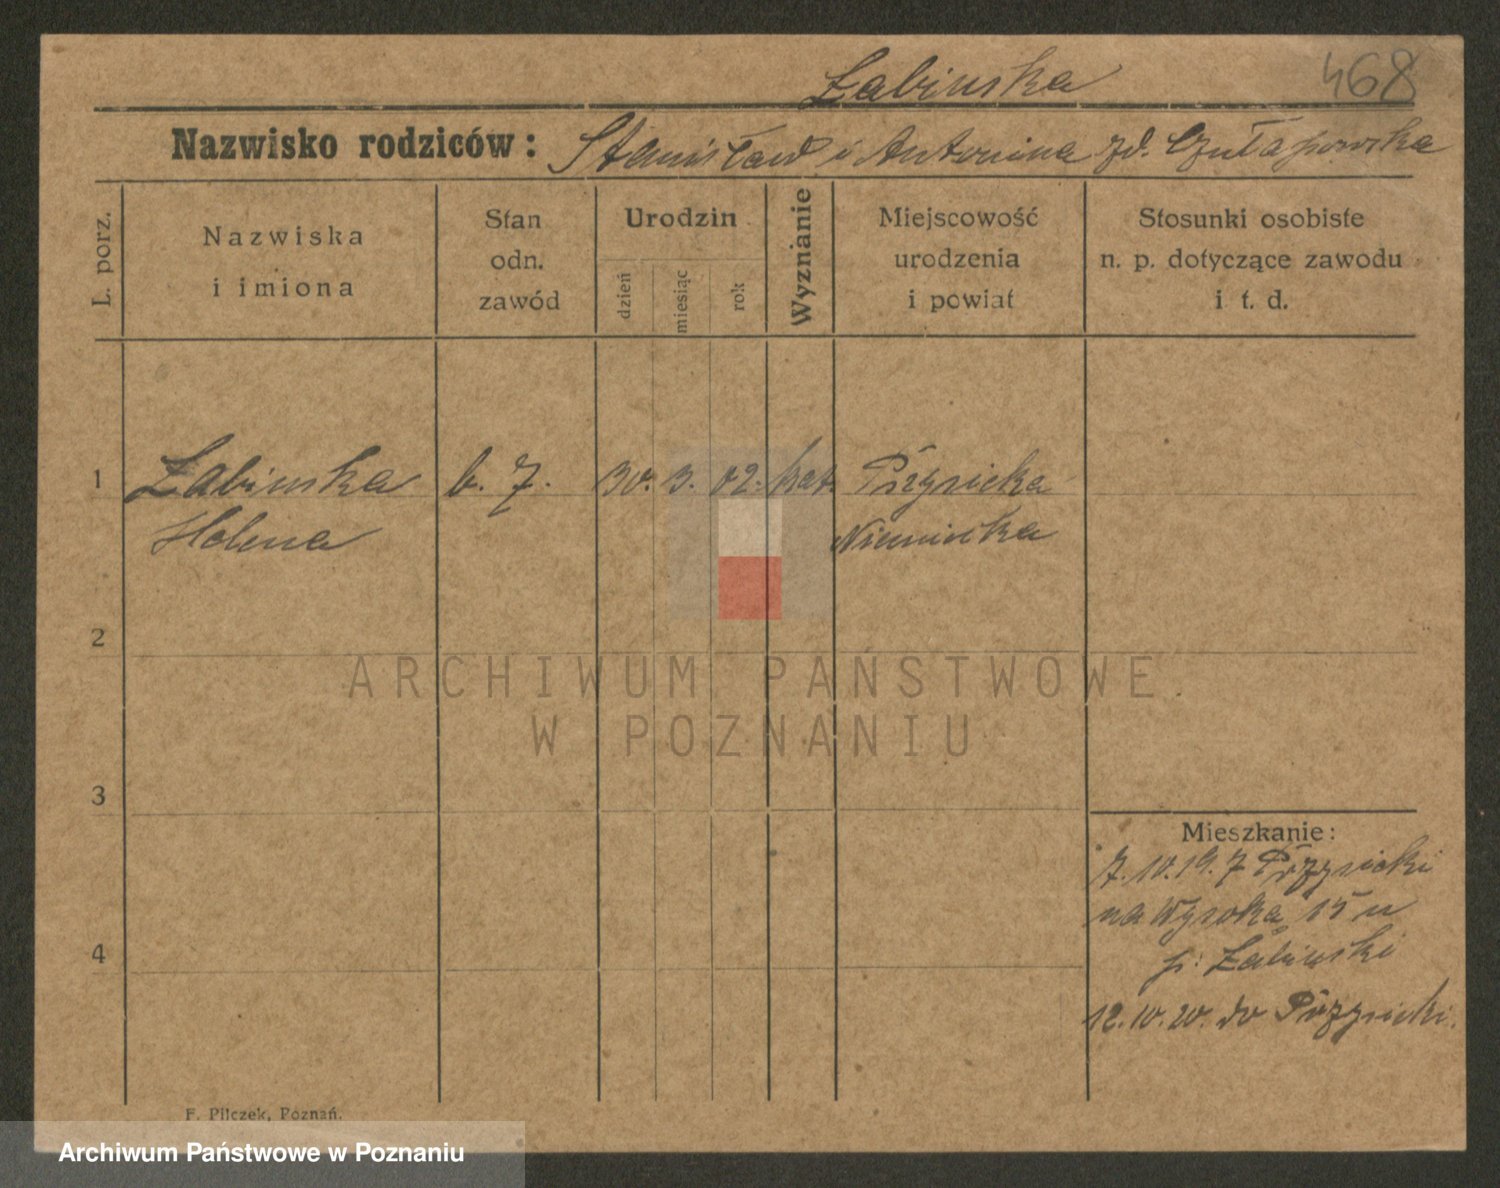 Żabinska
468
Nazwisko rodziców: Stanisław i Antonina zd. Czułapowska
L. porz.
Nazwiska
i imiona
Stan
odn.
zawód
Urodzin
dzień
miesiąc
rok
Wyznanie
Miejscowość
urodzenia
i powiat
Stosunki osobiste
n. p. dotyczące zawodu
i t. d.
1
Żabinska
Helena
b. z.
30. 3. 02. kat.
Przysieka
Niemiecka
2
3
4
Mieszkanie:
7.10.19. z Przysieki
na Wysoka 15 u
p. Żabinski
12.10.20. do Przysieki.
F. Pilczek, Poznań.
ARCHIWUM PAŃSTWOWE
W POZNANIU
Archiwum Państwowe w Poznaniu